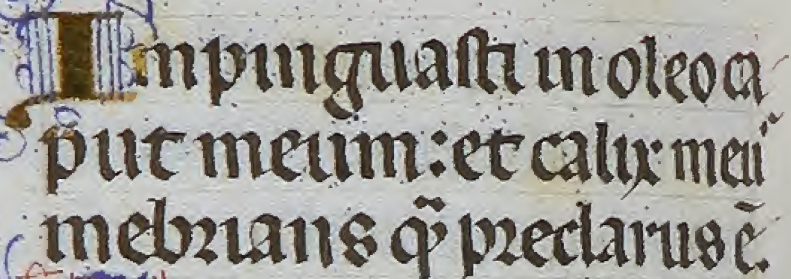 Impinguasti in oleo ca
put meum: et calix meū
inebrians q̄ preclarus ē.